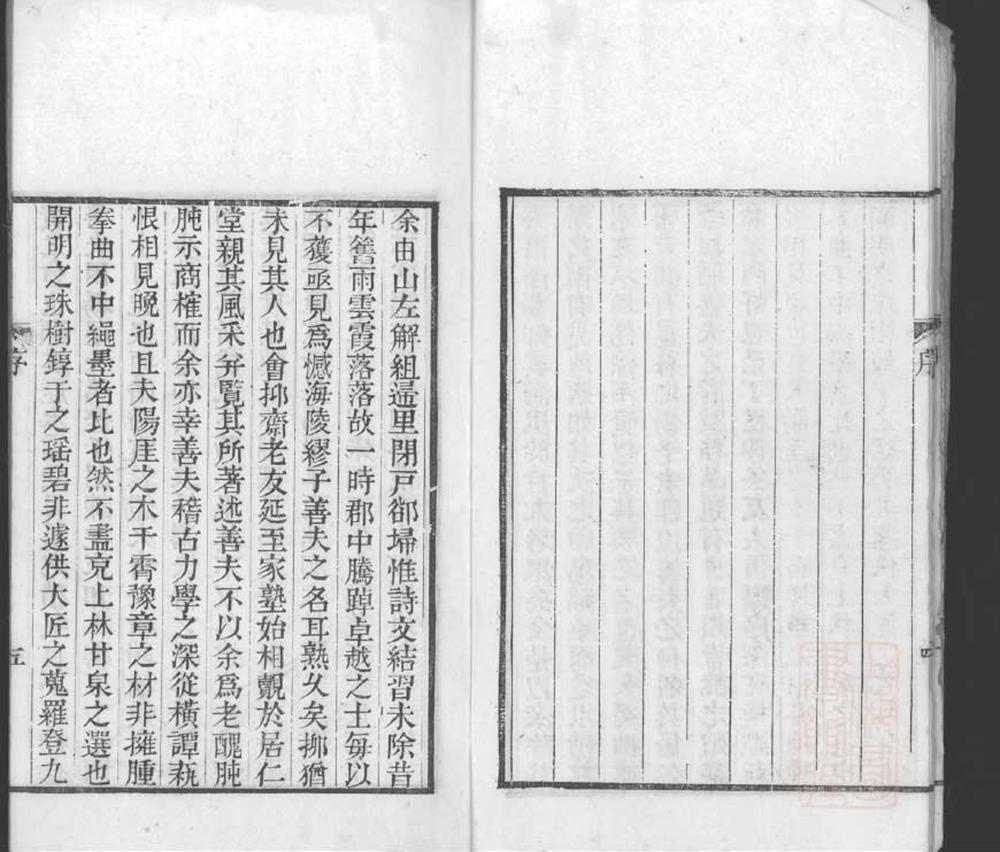 序
四
余由山左解組遄里閉戸卻埽惟詩文結習未除昔
年舊雨雲霞落落故一時郡中騰踔卓越之士每以
不獲亟見爲憾海陵繆子善夫之名耳熟久矣抑猶
未見其人也會抑齋老友延至家塾始相覿於居仁
堂親其風采并覽其所著述善夫不以余爲老醜肫
肫示商榷而余亦幸善夫稽古力學之深從橫譚蓺
恨相見晚也且夫陽厓之木干霄豫章之材非擁腫
拳曲不中繩墨者比也然不盡充上林甘泉之選也
開明之珠樹錞于之瑶碧非遽供大匠之蒐羅登九
序
五